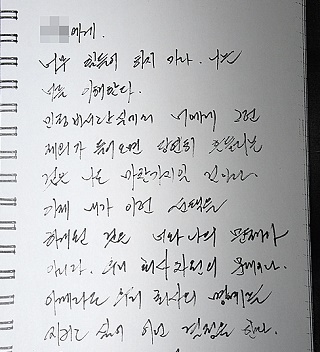 에게.
너무 힘들어 하지 마라. 나는
너를 이해한다.
민정비서관실에서 너에게 그런
제의가 들어오면 당연히 흔들리는
것은 나도 마찬가지일 것이다.
이제 내가 이런 선택을
하게된 것은 너와 나의 문제가
아니다. 우리 회사 차원의 문제이다.
이제라도 우리 회사의 명예를
지키고 싶어 이런 결정을 한다.